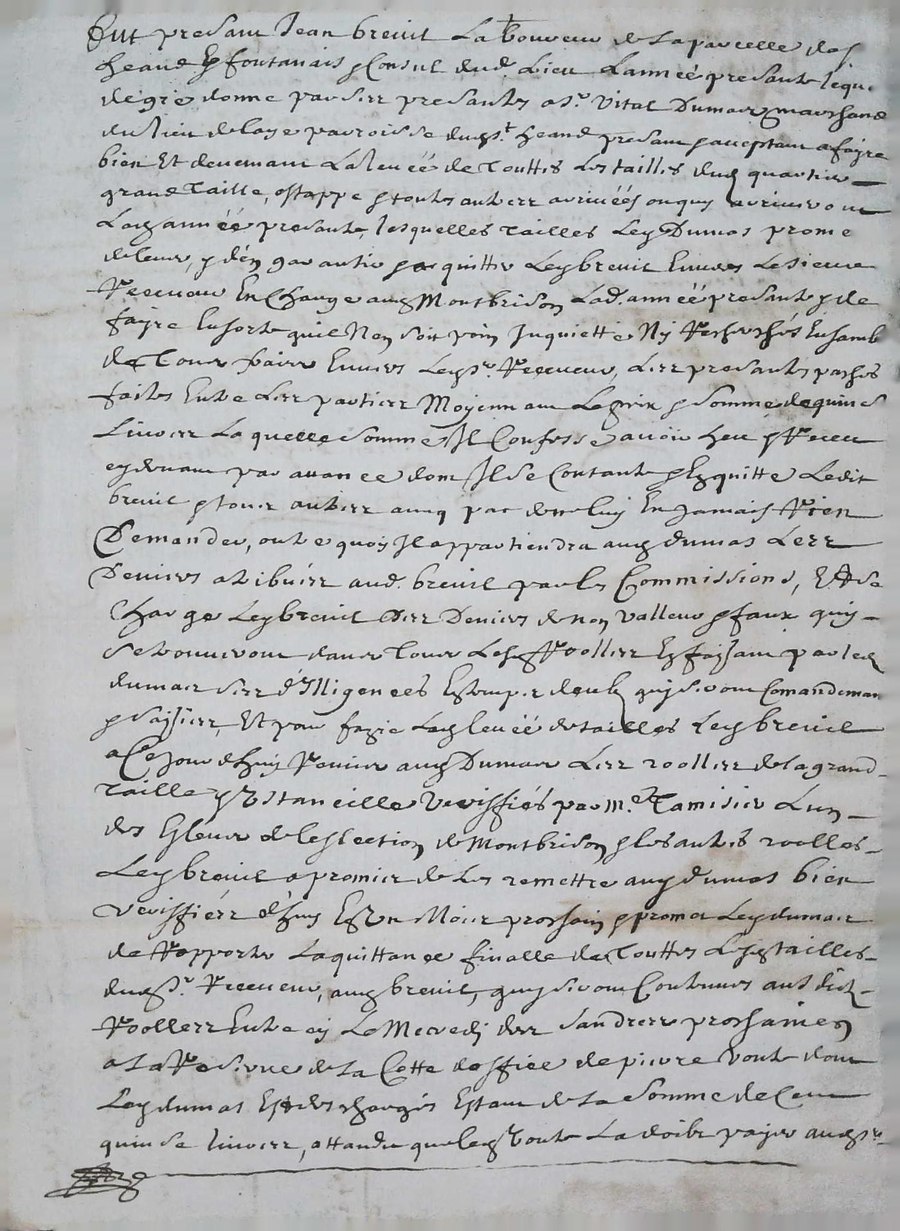 Fut presant Jean breuil Laboureur de la parcelle des
heand & fontanais & Consul dud. Lieu Lannéé presante lequ.
de gré donne par ses presantes a sr. Vital Dumas marchand
du lieu de laye parroisse dud st. heand presant & aceptant a fayre
bien Et deuemant La leuéé de Touttes Les tailles dud quartier
grand Taille, estappe & toutes autres arriuéés ou quy arriueront
Lad année presante, lesquelles Tailles Led Dumas promet
de leuer, & d'en garantir & acquitter Led breuil Enuers Le sieur
Receueur En Charge aud Montbrison Lad. année presante & de
fayre En sorte quil Nen soit point Inquietté Ny Recherché Ensamb
de Tout Enuers Led sr. Receueur, Les presantes pasches
faites Entre Les parties Moyennant Le prix & somme de quinse
Liures Laquelle somme Il Confesse auoir heu & Receu
cy deuant par auance dont Il se Contante & En quitte Ledit
breuil & tous autres auec pac de ne luy En Jamais Rien
Demander, outre quoy Il appartiendra aud dumas Les
Deniers atribués aud. breuil par les Commissions, Et se
Charge Led breuil Des Deniers de non Valleur & faux quy
se trouueront dans Tous Lesd Roolles En faisant par led
dumas ses d'Iligences En temps deub quy seront Comandemant
& saisies, Et pour fayre Lad leuéé de tailles Led breuil
a Ce Jour d'huy Remis aud Dumas Les roolles de la grand
Taille & Vstancille Veriffiés par Me. Tamisier Lun
des Esleus de leslection de Montbrison & les autres roolles
Led breuil a promis de les remettre aud dumas bien
Veriffiés d'huy En Vn Mois prochain & promet Led dumas
de Rapporter La quittance finalle de Touttes Lesd tailles
dud sr. Receueur, aud breuil, quy seront Contenues ausdicts
Roolles Entre cy Le Mecredj des sandres prochaines
a la Reserue de La Cotte d'offiée de pierre Voute dont
Led dumas Est deschargé Estant de La somme de Cent
quinse liures, attandu que led Voute La doibt payer aud sr